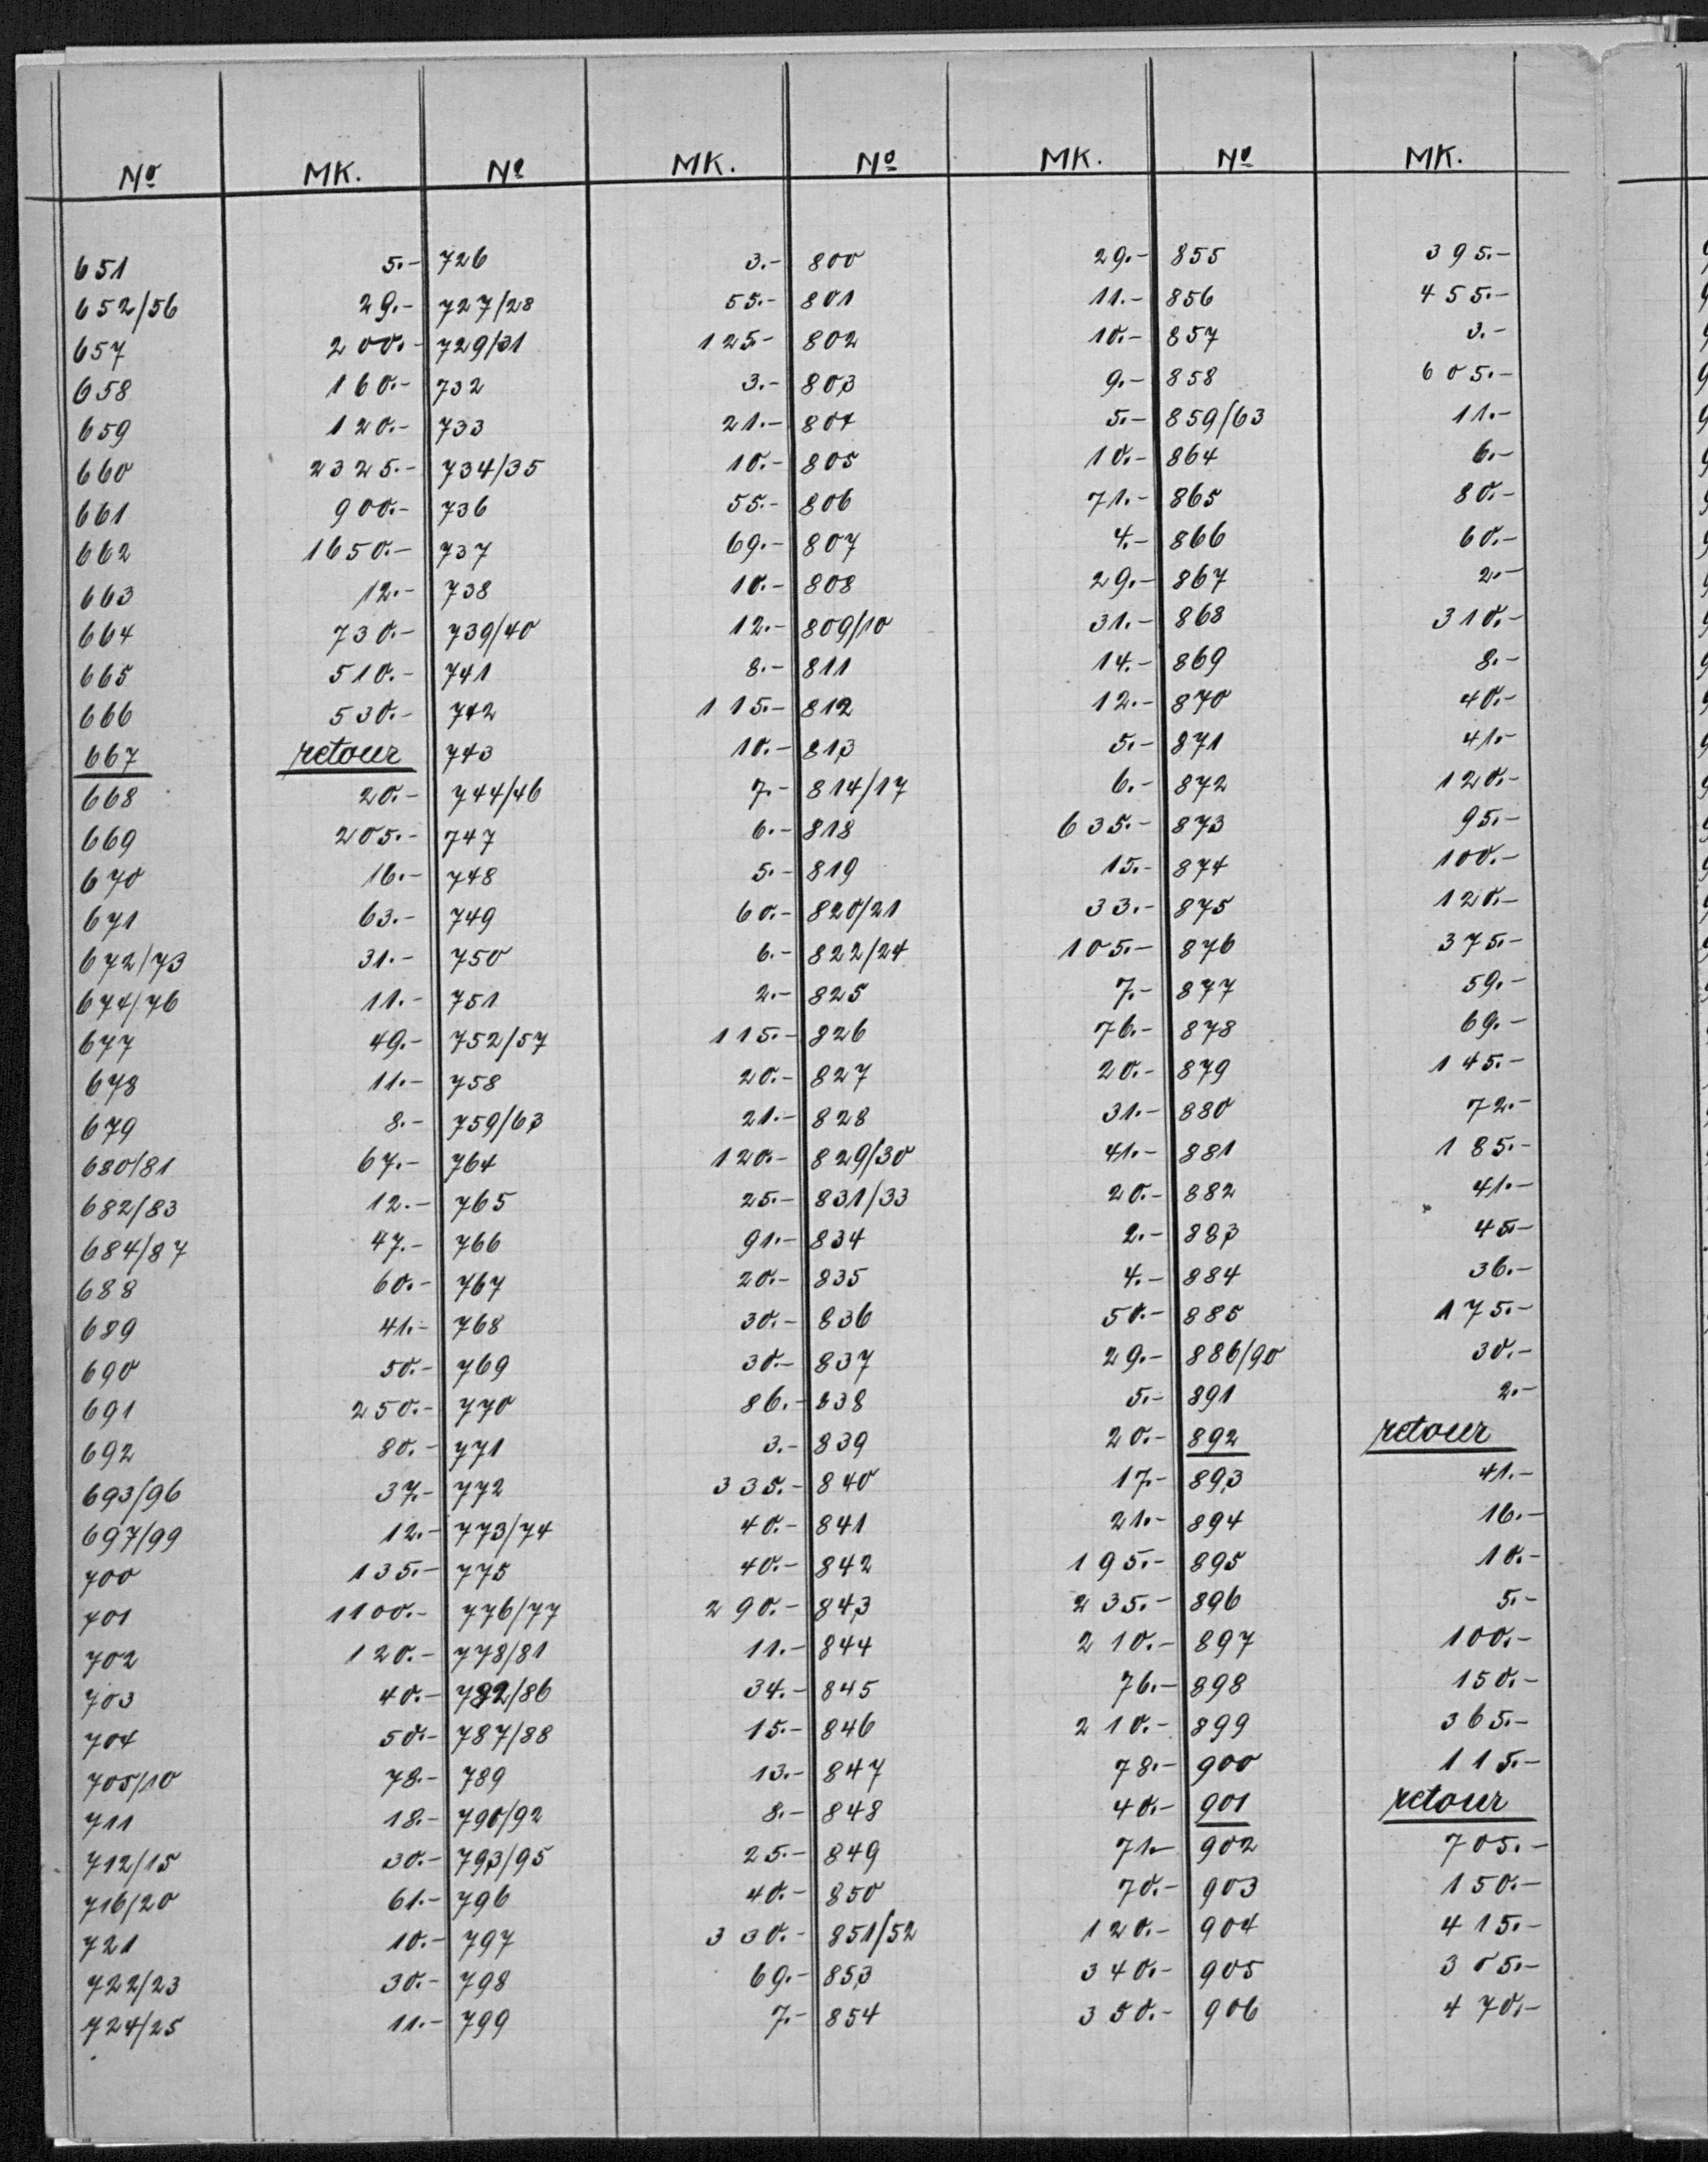 No MK. No MK. No MK. No MK.
651 5.- 726 3.- 800 29.- 855 395.-
652/56 29.- 727/28 55.- 801 11.- 856 455.-
657 200.- 729/31 125.- 802 10.- 857 3.-
658 160.- 732 3.- 803 9.- 858 605.-
659 120.- 733 21.- 804 5.- 859/63 11.-
660 2325.- 734/35 10.- 805 10.- 864 6.-
661 900.- 736 55.- 806 71.- 865 80.-
662 1650.- 737 69.- 807 4.- 866 60.-
663 12.- 738 10.- 808 29.- 867 2.-
664 730.- 739/40 12.- 809/10 31.- 868 310.-
665 510.- 741 8.- 811 14.- 869 8.-
666 530.- 742 115.- 812 12.- 870 40.-
667 retour 743 10.- 813 5.- 871 41.-
668 20.- 744/46 7.- 814/17 6.- 872 120.-
669 205.- 747 6.- 818 635.- 873 95.-
670 16.- 748 5.- 819 15.- 874 100.-
671 63.- 749 60.- 820/21 33.- 875 120.-
672/73 31.- 750 6.- 822/24 105.- 876 375.-
674/76 11.- 751 2.- 825 7.- 877 59.-
677 49.- 752/57 115.- 826 76.- 878 69.-
678 11.- 758 20.- 827 20.- 879 145.-
679 8.- 759/63 21.- 828 31.- 880 72.-
680/81 67.- 764 120.- 829/30 41.- 881 185.-
682/83 12.- 765 25.- 831/33 20.- 882 41.-
684/87 47.- 766 91.- 834 2.- 883 45.-
688 60.- 767 20.- 835 4.- 884 36.-
689 41.- 768 30.- 836 50.- 885 175.-
690 50.- 769 30.- 837 29.- 886/90 30.-
691 250.- 770 86.- 838 5.- 891 2.-
692 80.- 771 3.- 839 20.- 892 retour
693/96 37.- 772 335.- 840 17.- 893 41.-
697/99 12.- 773/74 40.- 841 21.- 894 16.-
700 135.- 775 40.- 842 195.- 895 10.-
701 1100.- 776/77 290.- 843 235.- 896 5.-
702 120.- 778/81 11.- 844 210.- 897 100.-
703 40.- 782/86 34.- 845 76.- 898 150.-
704 50.- 787/88 15.- 846 210.- 899 365.-
705/10 78.- 789 13.- 847 78.- 900 115.-
711 18.- 790/92 8.- 848 40.- 901 retour
712/15 30.- 793/95 25.- 849 71.- 902 705.-
716/20 61.- 796 40.- 850 70.- 903 150.-
721 10.- 797 330.- 851/52 120.- 904 415.-
722/23 30.- 798 69.- 853 340.- 905 305.-
724/25 11.- 799 7.- 854 350.- 906 470.-